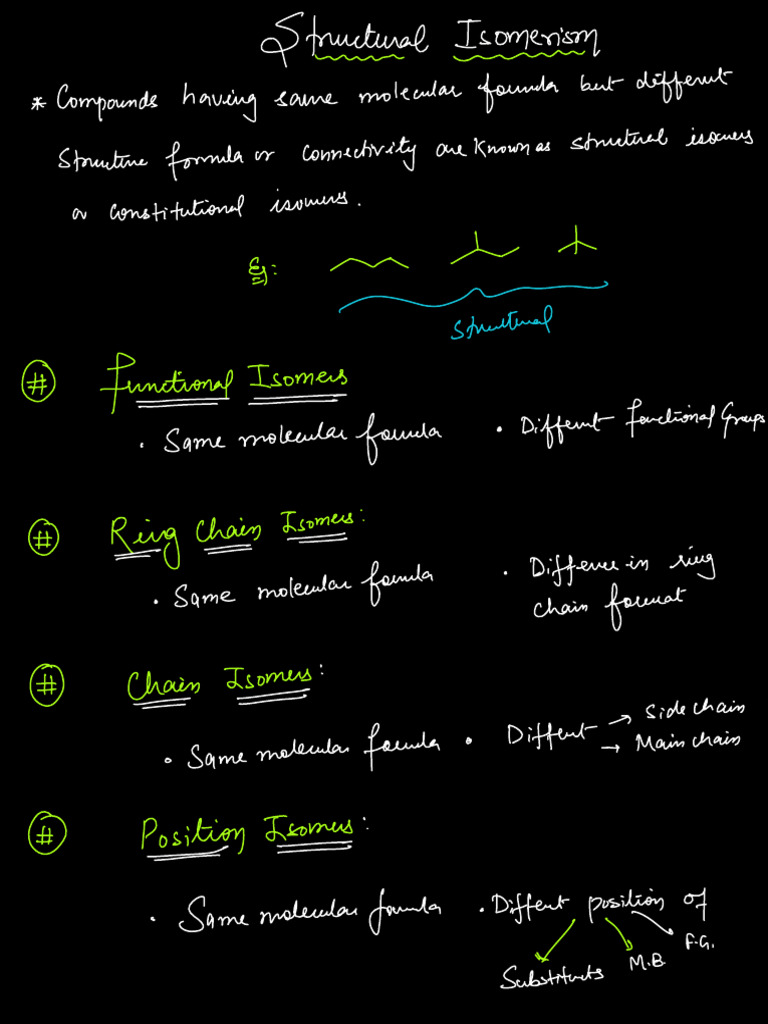 Structural Isomerism
* Compounds having same molecular formula but different
structure formula or connectivity are known as structural isomers
or constitutional isomers.
Eg:
Structural
# Functional Isomers
· Same molecular formula · Different functional Groups
# Ring Chain Isomers:
· Same molecular formula · Difference in ring
chain format
# Chain Isomers:
· Same molecular formula · Diffent → Side chain
→ Main chain
# Position Isomers:
· Same molecular formula · Diffent position of
Substituts M.B. F.G.